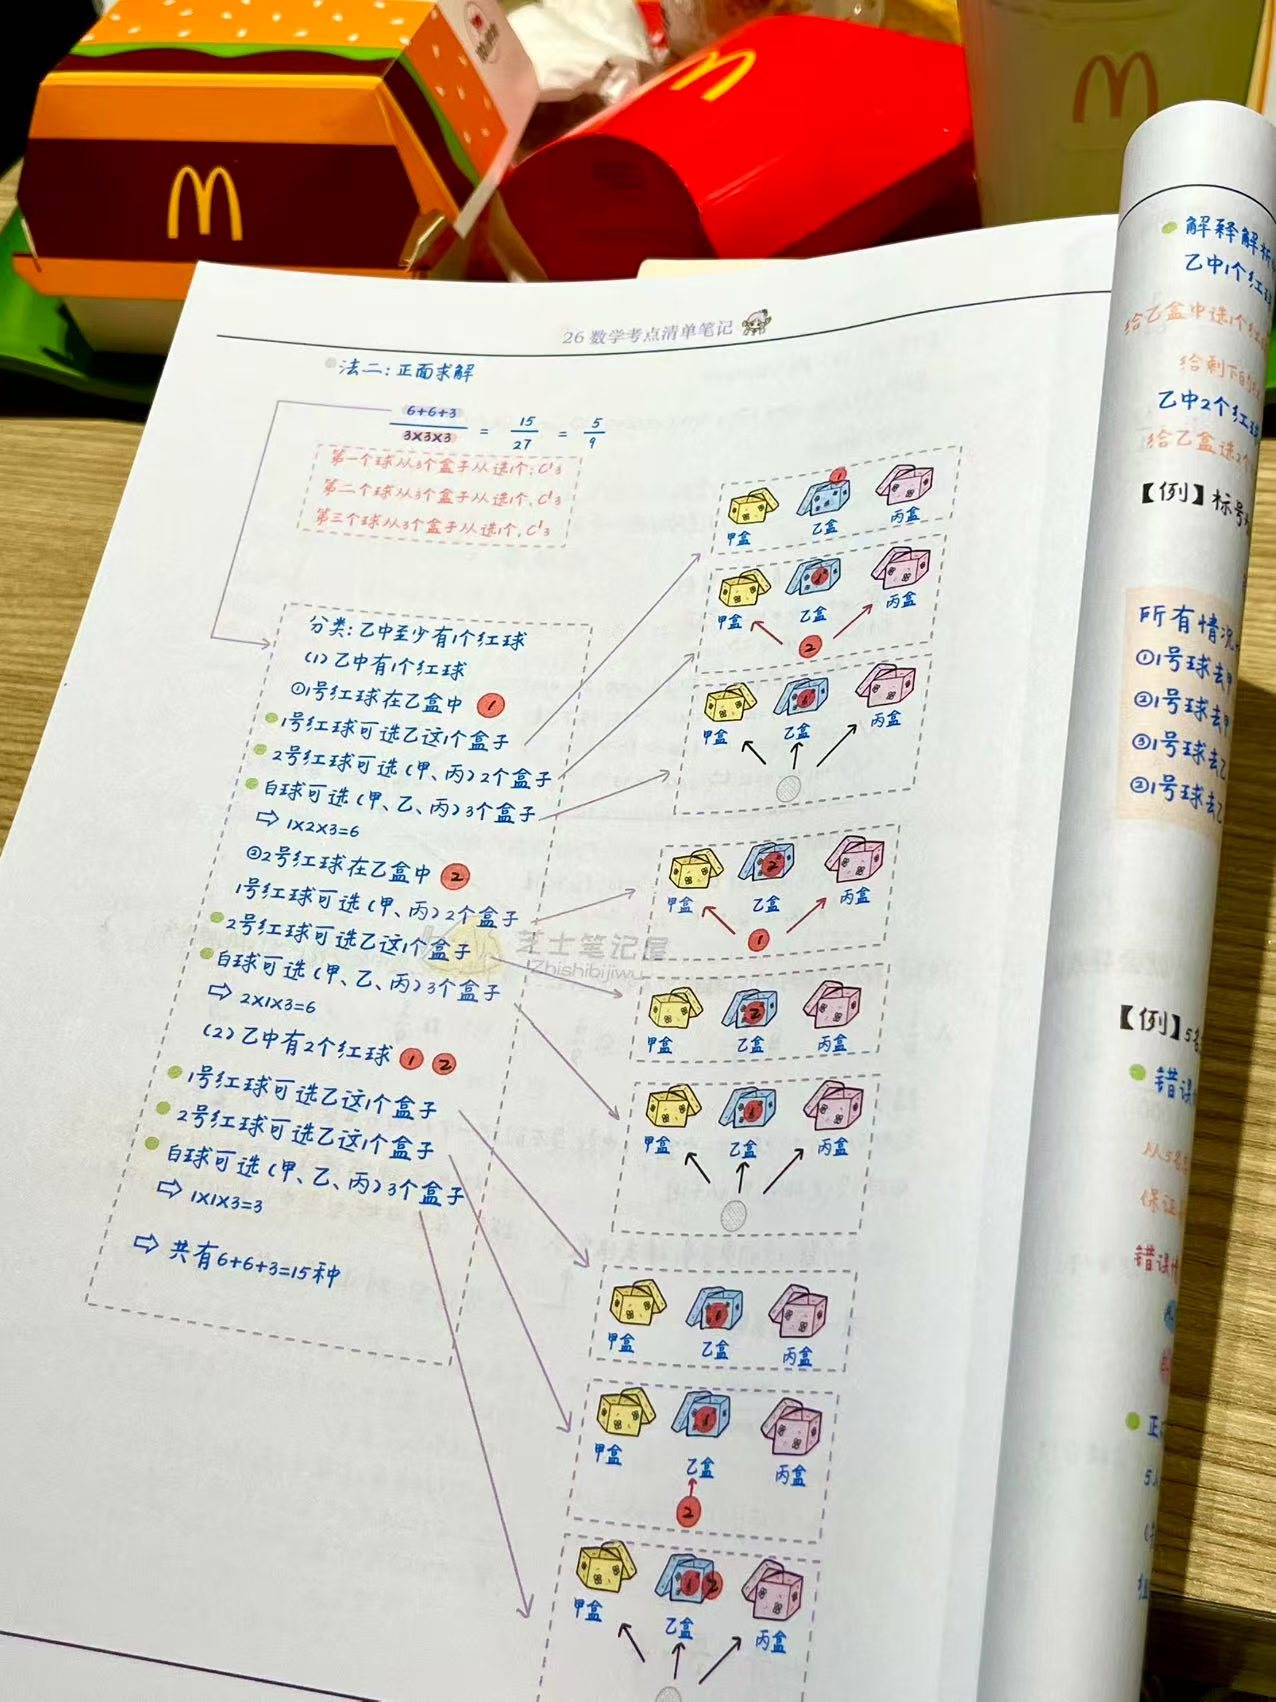 26 数学考点清单笔记
法二：正面求解
6+6+3
3×3×3
= 15/27 = 5/9
第一个球从3个盒子从选1个：C¹₃
第二个球从3个盒子从选1个，C¹₃
第三个球从3个盒子从选1个，C¹₃
分类：乙中至少有1个红球
(1) 乙中有1个红球
①1号红球在乙盒中 1
1号红球可选乙这1个盒子
2号红球可选(甲、丙)2个盒子
白球可选(甲、乙、丙)3个盒子
⇨ 1×2×3=6
②2号红球在乙盒中 2
1号红球可选(甲、丙)2个盒子
2号红球可选乙这1个盒子
白球可选(甲、乙、丙)3个盒子
⇨ 2×1×3=6
(2) 乙中有2个红球 1 2
1号红球可选乙这1个盒子
2号红球可选乙这1个盒子
白球可选(甲、乙、丙)3个盒子
⇨ 1×1×3=3
⇨ 共有6+6+3=15种
芝士笔记屋
Zhishibijiwu
1
甲盒 乙盒 丙盒
甲盒 乙盒 丙盒
2
甲盒 乙盒 丙盒
2
甲盒 乙盒 丙盒
1
甲盒 乙盒 丙盒
甲盒 乙盒 丙盒
甲盒 乙盒 丙盒
甲盒 乙盒 丙盒
2
2
甲盒 乙盒 丙盒
解释解析
乙中1个红
给乙盒中选1个
给剩下
乙中2个红球
给乙盒选2
【例】标号
所有情况
①1号球去甲
②1号球去甲
③1号球去乙
②1号球去乙
【例】5名
错误
从5名
保证
错误
正
5人